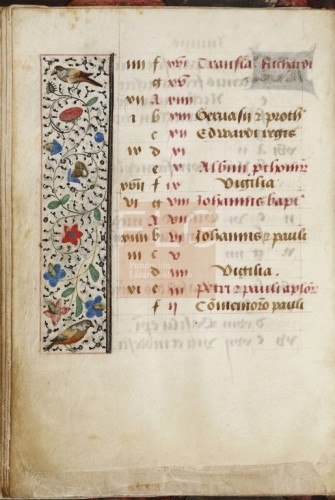 iiii f xvi Transla. Richardi
g xv
xii A xiiii
i b xiii Gervasii et proth
c xii Edwardi regis
ix d xi
e x Albini prothomr
xvii f ix Vigilia
vi g viii Johannis bapt
A vii
xiiii b vi Johannis et pauli
iii c v
d iiii Vigilia.
xi e iii Petri et pauli aplor
f ii Comemoro pauli